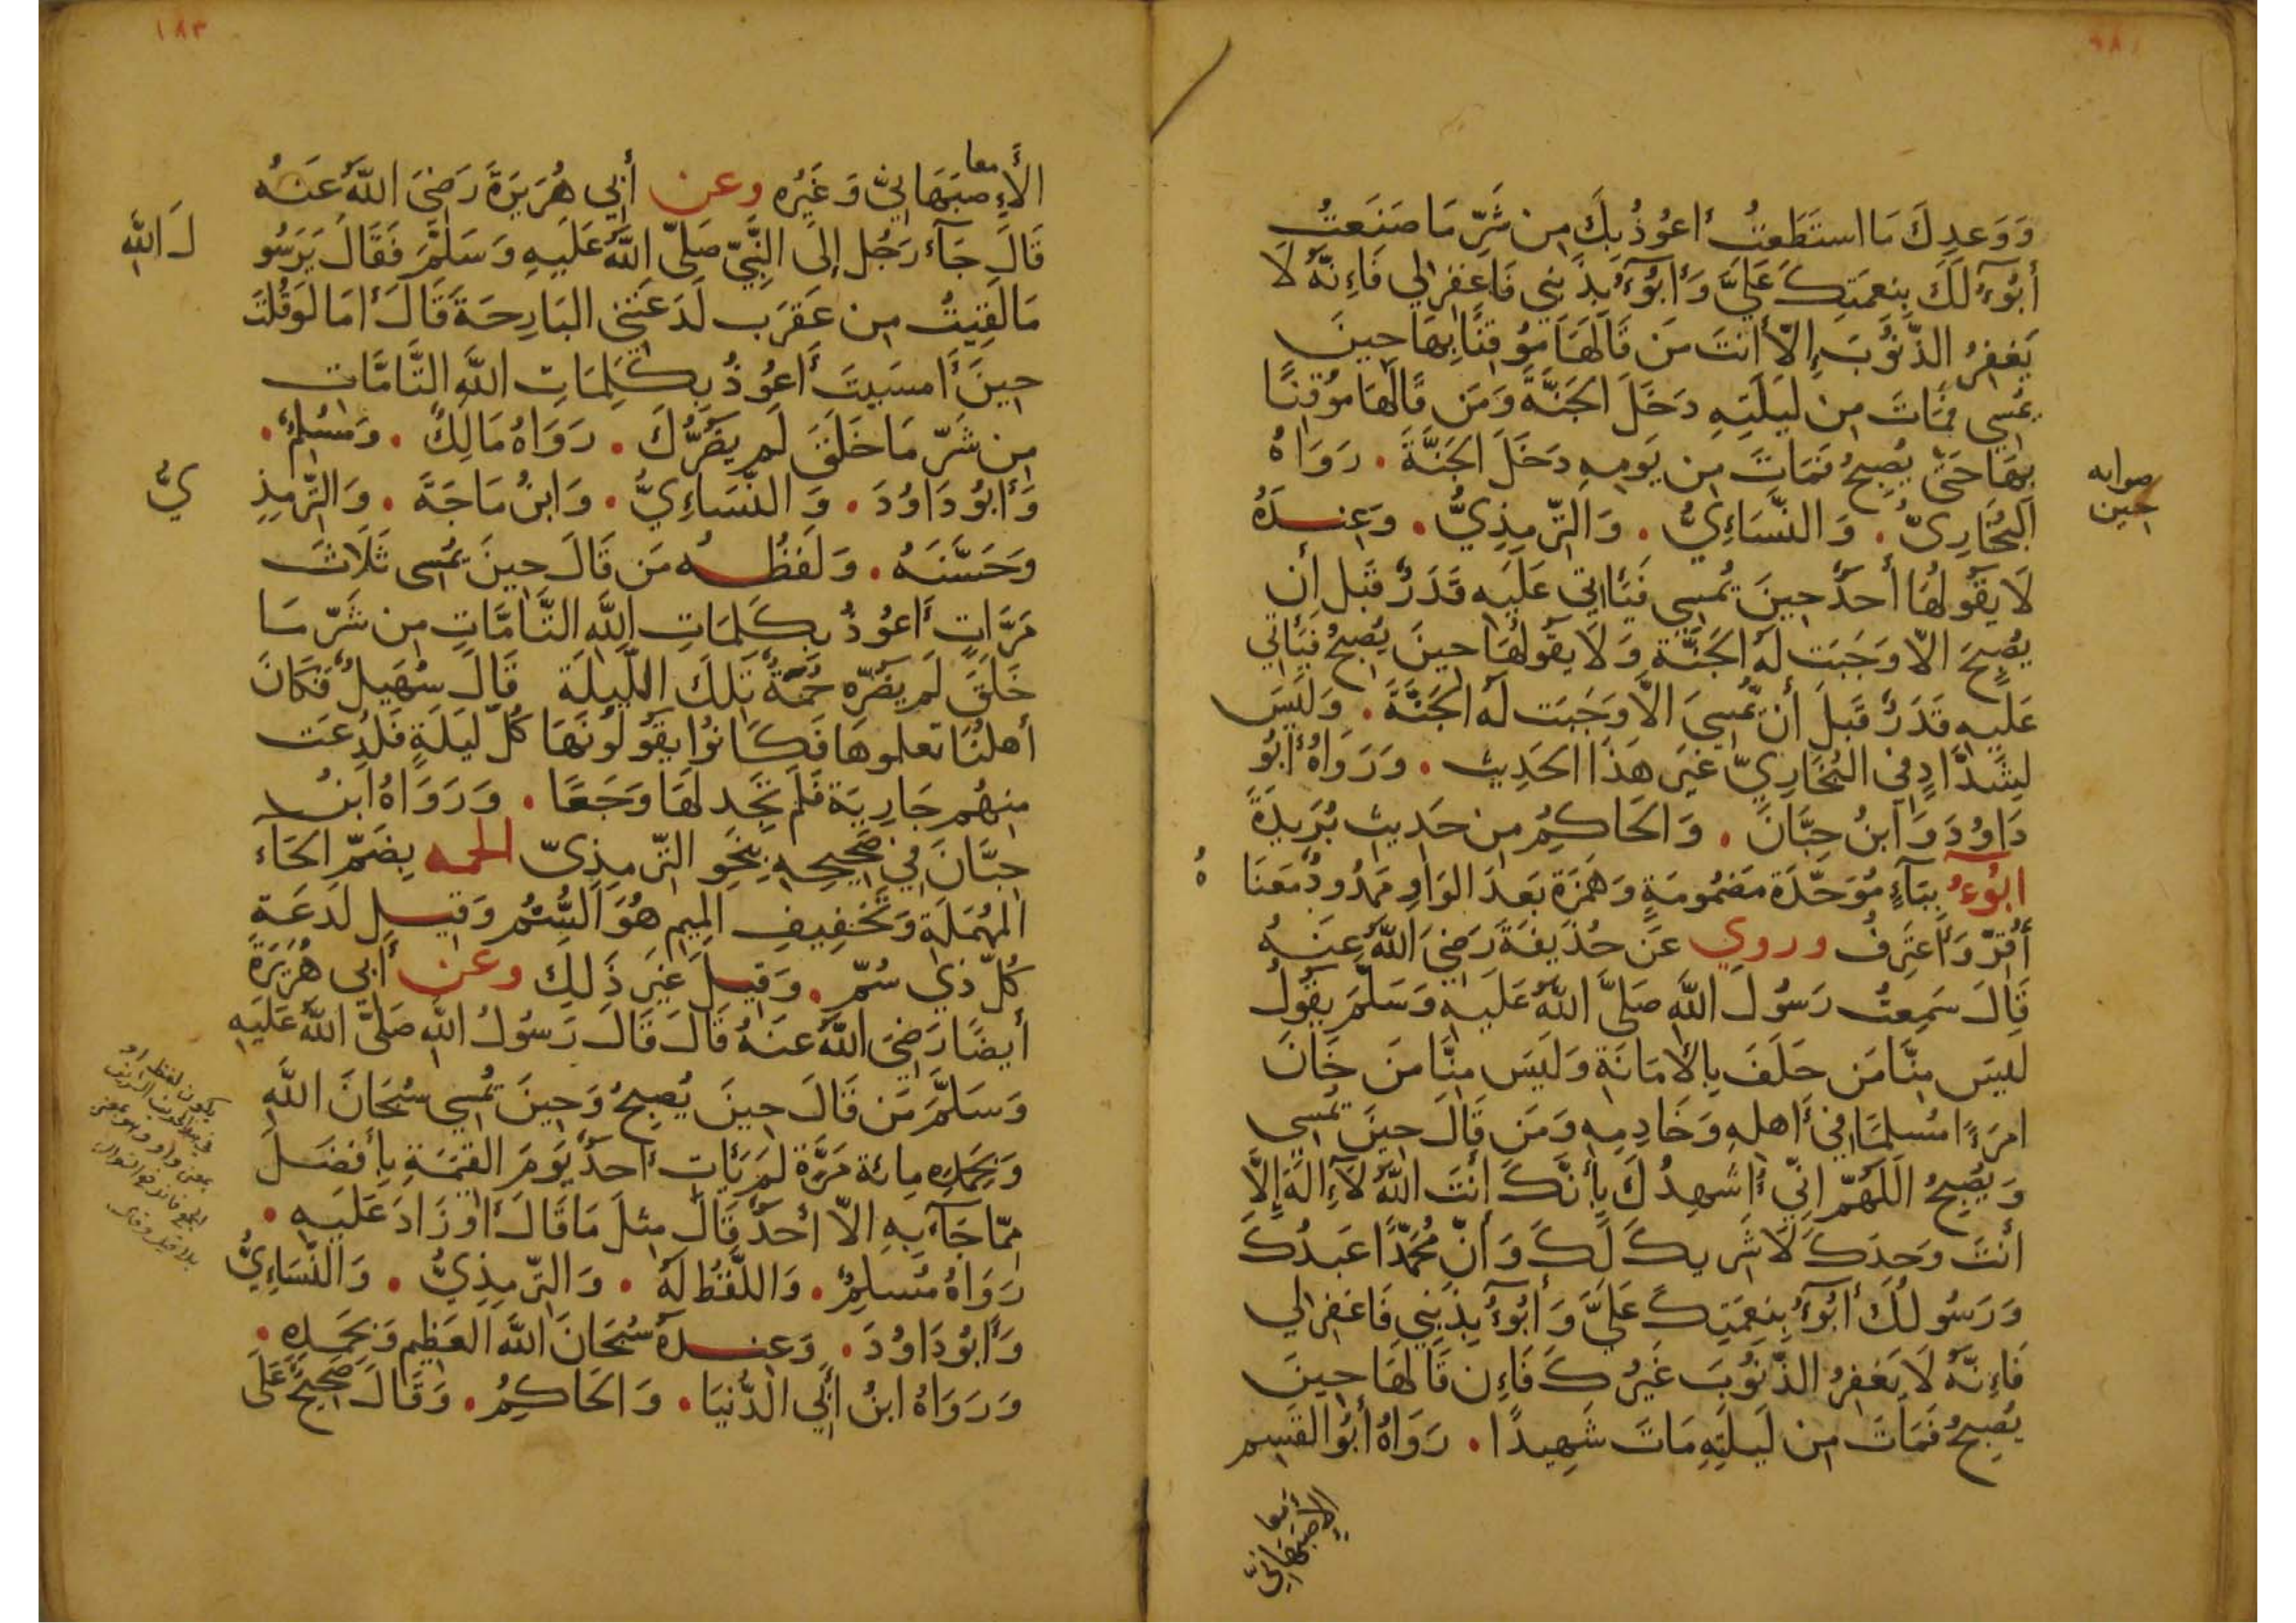 وَوَعدِكَ مَا استَطَعتُ أعُوذُ بِكَ مِن شَرِّ مَا صَنَعتُ
أبُوٓءُ لَكَ بِنعمَتِكَ عَلَيَّ وَأبُوٓءُ بِذَنبِي فَاغفِر لي فَإِنَّهُ لَا
يَغفِرُ الذُّنُوبَ إِلّا أنتَ مَن قَالَهَا مُوقِنًا بِهَا حِينَ
يُمسِي فَمَاتَ مِن لَيلَتِهِ دَخَلَ الجَنَّةَ وَمَن قَالَهَا مُوقِنًا
بِهَا حَتَّى يُصبِحُ فَمَاتَ مِن يَومِهِ دَخَلَ الجَنَّةَ . رَوَاهُ
صوابه
حين
البُخَارِيُّ . وَالنَّسَاءِيُّ . وَالتِّرمِذِيُّ . وَعِندَهُ
لَا يَقُولُهَا أحَدٌ حِينَ يُمسِي فَيَأتِي عَلَيهِ قَدَرٌ قَبلَ أن
يُصبِحَ الّا وَجَبَت لَهُ الجَنَّة وَلَا يَقُولُهَا حِينَ يُصبِحُ فَيَأتي
عَلَيهِ قَدَرٌ قَبلَ أن يُمسِيَ الّا وَجَبَت لَهُ الجَنَّةَ . وَلَيسَ
لِشَدَّادٍ في البُخَارِيِّ غَيرَ هَذَا الحَدِيث . وَرَوَاهُ أبُو
دَاوُدَ وَابنُ حِبَّانَ . وَالحَاكِمُ مِن حَدِيثِ بُرَيدَةَ
ابُوٓءُ بِبَآءٍ مُوَحَّدَة مَضمُومَةٍ وَهَمزَة بَعدَ الوَاوِ مَمدُودٌ مَعنَا
هُ
أُقِرّ وَأعتَرِفُ وروي عَن حُذَيفَةَ رَضِيَ اللَّهُ عَنهُ
قَالَ سَمِعتُ رَسُولَ اللَّهِ صَلَّى اللَّهُ عَلَيهِ وَسَلَّمَ يَقُولُ
لَيسَ مِنَّا مَن حَلَفَ بِالأمَانَةِ وَلَيسَ مِنَّا مَن خَانَ
امرَءًا مُسلِمًا في أهلِهِ وَخَادِمِهِ وَمَن قَالَ حِينَ يُمسِي
وَيُصبِحُ اللَّهُمّ اِنّي أُشهِدُكَ بِأنَّكَ أنتَ اللَّهُ لآَإِلَهَ إِلَّا
أنتَ وَحدَكَ لَا شَرِيكَ لَكَ وَأنّ مُحَمَّدًا عَبدُكَ
وَرَسُولُكَ أبُوٓءُ بِنِعمَتِكَ عَلَيَّ وَأبُوٓءُ بِذَنبِي فَاغفِر لي
فَاِنّهُ لَا يَغفِرُ الذُّنُوبَ غَيرُكَ فَاِن قَالَهَا حِينَ
يُصبِحُ فَمَاتَ مِن لَيلَتِهِ مَاتَ شَهِيدًا . رَوَاهُ أبُو القَسِم
معا
الأصبَهَانِيُّ
١٨٣
معا
الأَصبَهَانِيُّ وَغَيرُه وعن أبي هُرَيرَةَ رَضِيَ اللَّهُ عَنهُ
قَالَ جَآءَ رَجُل إلَى النَّبِيِّ صَلّى اللَّهُ عَلَيهِ وَسَلَّمَ فَقَالَ يَرَسُو
لَ اللَّهِ
مَا لَقِيتُ مِن عَقرَب لَدَغَتني البَارِحَةَ قَالَ أمَا لَو قُلتَ
حِينَ أمسَيتَ أعُوذُ بِكَلِمَاتِ اللَّهِ التَّامَّاتِ
مِن شَرّ مَا خَلَقَ لَم يَضُرَّكَ . رَوَاهُ مَالِكٌ . وَمُسلِمٌ .
وَأبُو دَاوُدَ . وَالنَّسَاءِيُّ . وَابنُ مَاجَةَ . وَالتِّرمِذِ
يُّ
وَحَسَّنَهُ . وَلَفظُهُ مَن قَالَ حِينَ يُمسى ثَلَاثَ
مَرَّاتٍ أعُوذُ بِكَلِمَاتِ اللَّهِ التَّامَّاتِ مِن شَرّ مَا
خَلَقَ لَم يَضُرّه حُمَةٌ تِلكَ اللَّيلَةَ قَالَ سُهَيلٌ فَكَانَ
أهلُنَا تعلموهَا فَكَانُوا يَقُولُونَهَا كُلّ لَيلَةٍ فَلُدِغَت
مِنهُم جَارِيَة فَلَم تَجِد لَهَا وَجَعًا . وَرَوَاهُ ابنُ
حِبَّانَ في صَحِيحِهِ بِنَحوِ التِّرمِذِيّ الحمه بِضَمّ الحَآء
المُهمَلَة وَتَخفِيفِ المِيم هُوَ السُّمُّ وَقِيلَ لَدغَةِ
كُلّ ذي سُمّ . وَقِيلَ غَيرَ ذَلِكَ وعن أبي هُرَيرَةَ
أيضًا رَضِيَ اللَّهُ عَنهُ قَالَ قَالَ رَسُولُ اللَّهِ صَلَّى اللَّهُ عَلَيهِ
وَسَلَّمَ مَن قَالَ حِينَ يُصبِحُ وَحِينَ يُمسِي سُبحَانَ اللَّهِ
وَبِحَمدِهِ مِائة مَرَّة لَم يَأتِ أحَدٌ يَومَ القِيَمَةِ بِأفضَلَ
مِمّا جَآءَ بِهِ الاّ أحَدٌ قَالَ مِثلَ مَا قَالَ أو زَادَ عَلَيهِ .
رَوَاهُ مُسلِمٌ . وَاللَّفظُ لَهُ . وَالتِّرمِذِيُّ . وَالنَّسَاءِيُّ
وَأبُو دَاوُدَ . وَعِندَهُ سُبحَانَ اللَّهِ العَظِيمِ وَبِحَمدِهِ .
وَرَوَاهُ ابنُ أبِي الدُّنيَا . وَالحَاكِمُ . وَقَالَ صَحِيحٌ عَلَى